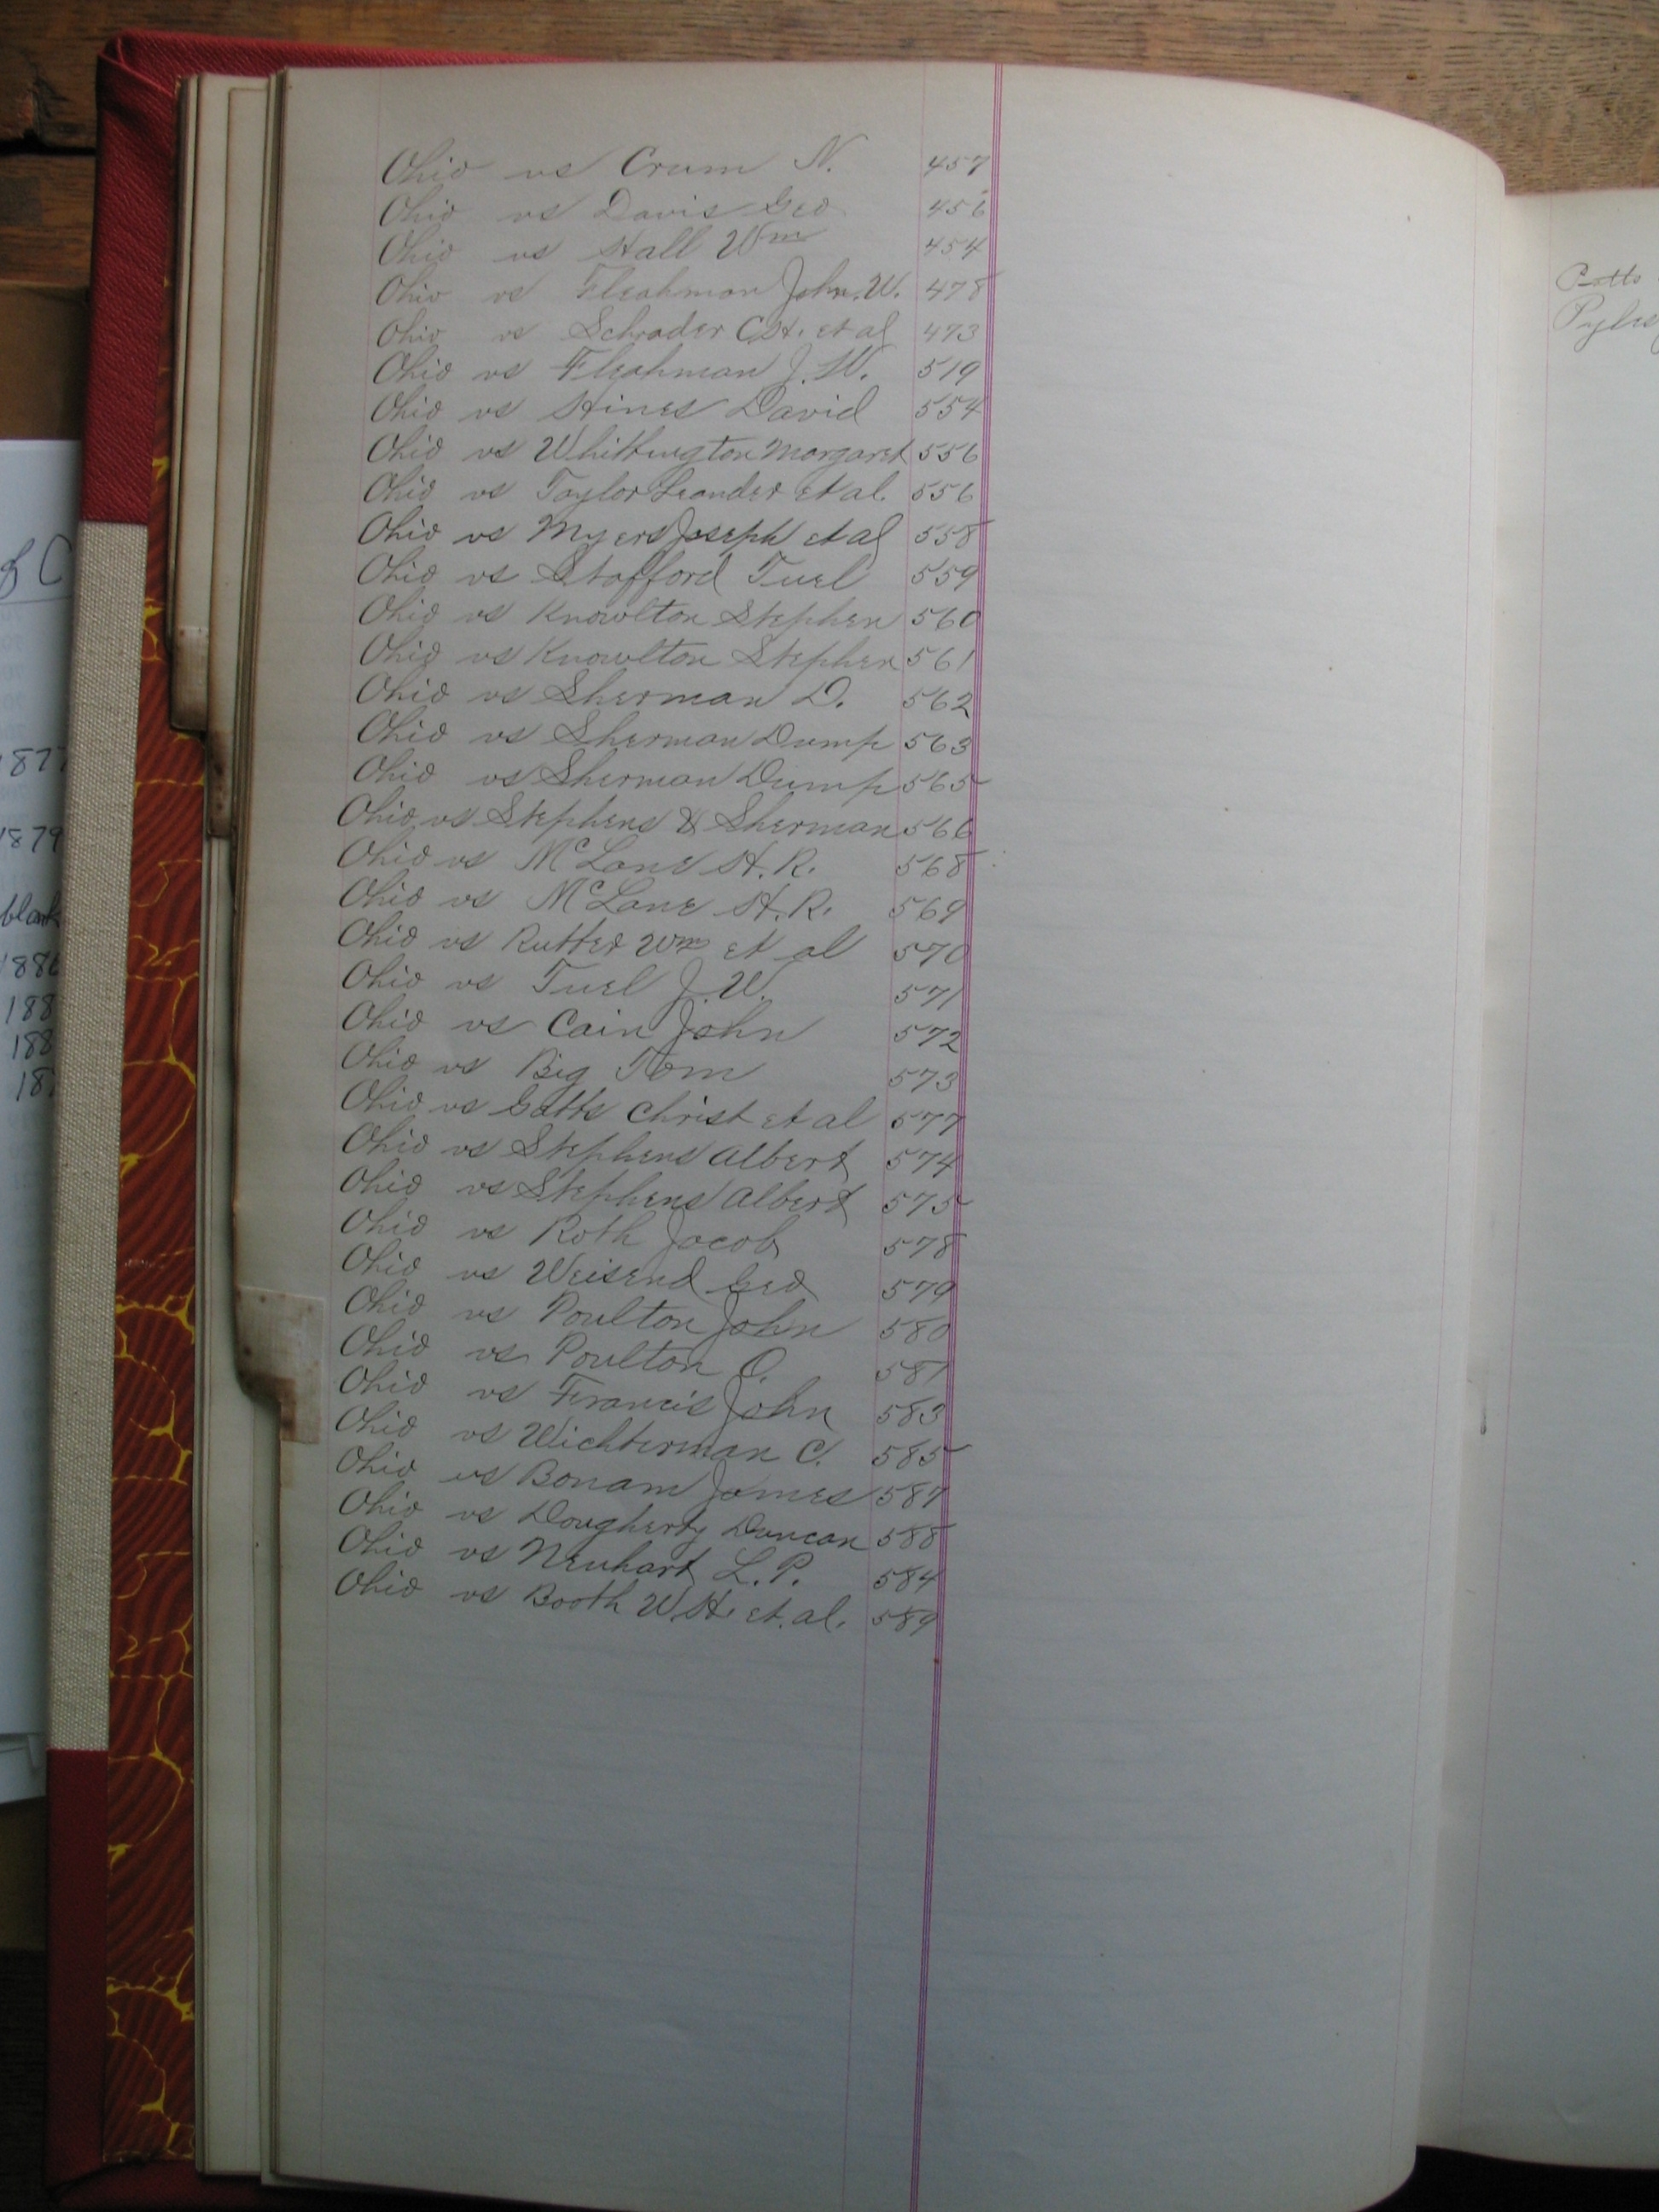 Ohio vs Crum N. 457
Ohio vs Davis Geo 456
Ohio vs Hall Wm 454
Ohio vs Fleahman John. W. 478
Ohio vs Schrader C.H. et al 473
Ohio vs Fleahman J. W. 519
Ohio vs Hines David 554
Ohio vs Whittington Margaret 556
Ohio vs Taylor Leander et al. 556
Ohio vs Myers Joseph et al 558
Ohio vs Stafford Tuel 559
Ohio vs Knowlton Stephen 560
Ohio vs Knowlton Stephen 561
Ohio vs Sherman D. 562
Ohio vs Sherman Dump 563
Ohio vs Sherman Dump 565
Ohio vs Stephens & Sherman 566
Ohio vs McLane H. R. 568
Ohio vs McLane H. R. 569
Ohio vs Rutter Wm et al 570
Ohio vs Tuel J. W. 571
Ohio vs Cain John 572
Ohio vs Big Tom 573
Ohio vs Gatts Christ et al 577
Ohio vs Stephens Albert 574
Ohio vs Stephens Albert 575
Ohio vs Roth Jacob 578
Ohio vs Weisend Geo 579
Ohio vs Poulton John 580
Ohio vs Poulton O. 581
Ohio vs Francis John 583
Ohio vs Wichterman C. 585
Ohio vs Bonam James 587
Ohio vs Dougherty Duncan 588
Ohio vs Neuhart L. P. 584
Ohio vs Booth W. H. et. al. 589
of C
1877
1879
blank
188
188
Potts
Pyles